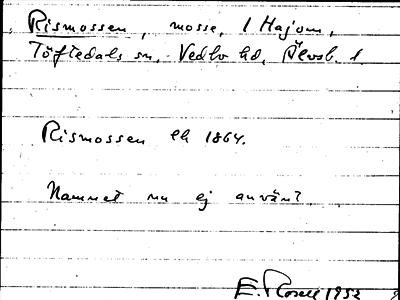 Rismossen, mosse, 1 Hajom,
Töftedals sn, Vedbo hd, Älvsb. l.
Rismossen lk 1864.
Namnet nu ej använt
E. Rosell 1952